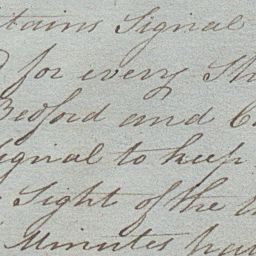 tains Signal
for every Sh
Bedford and C
Signal to keep
Sight of the
Minutes ha